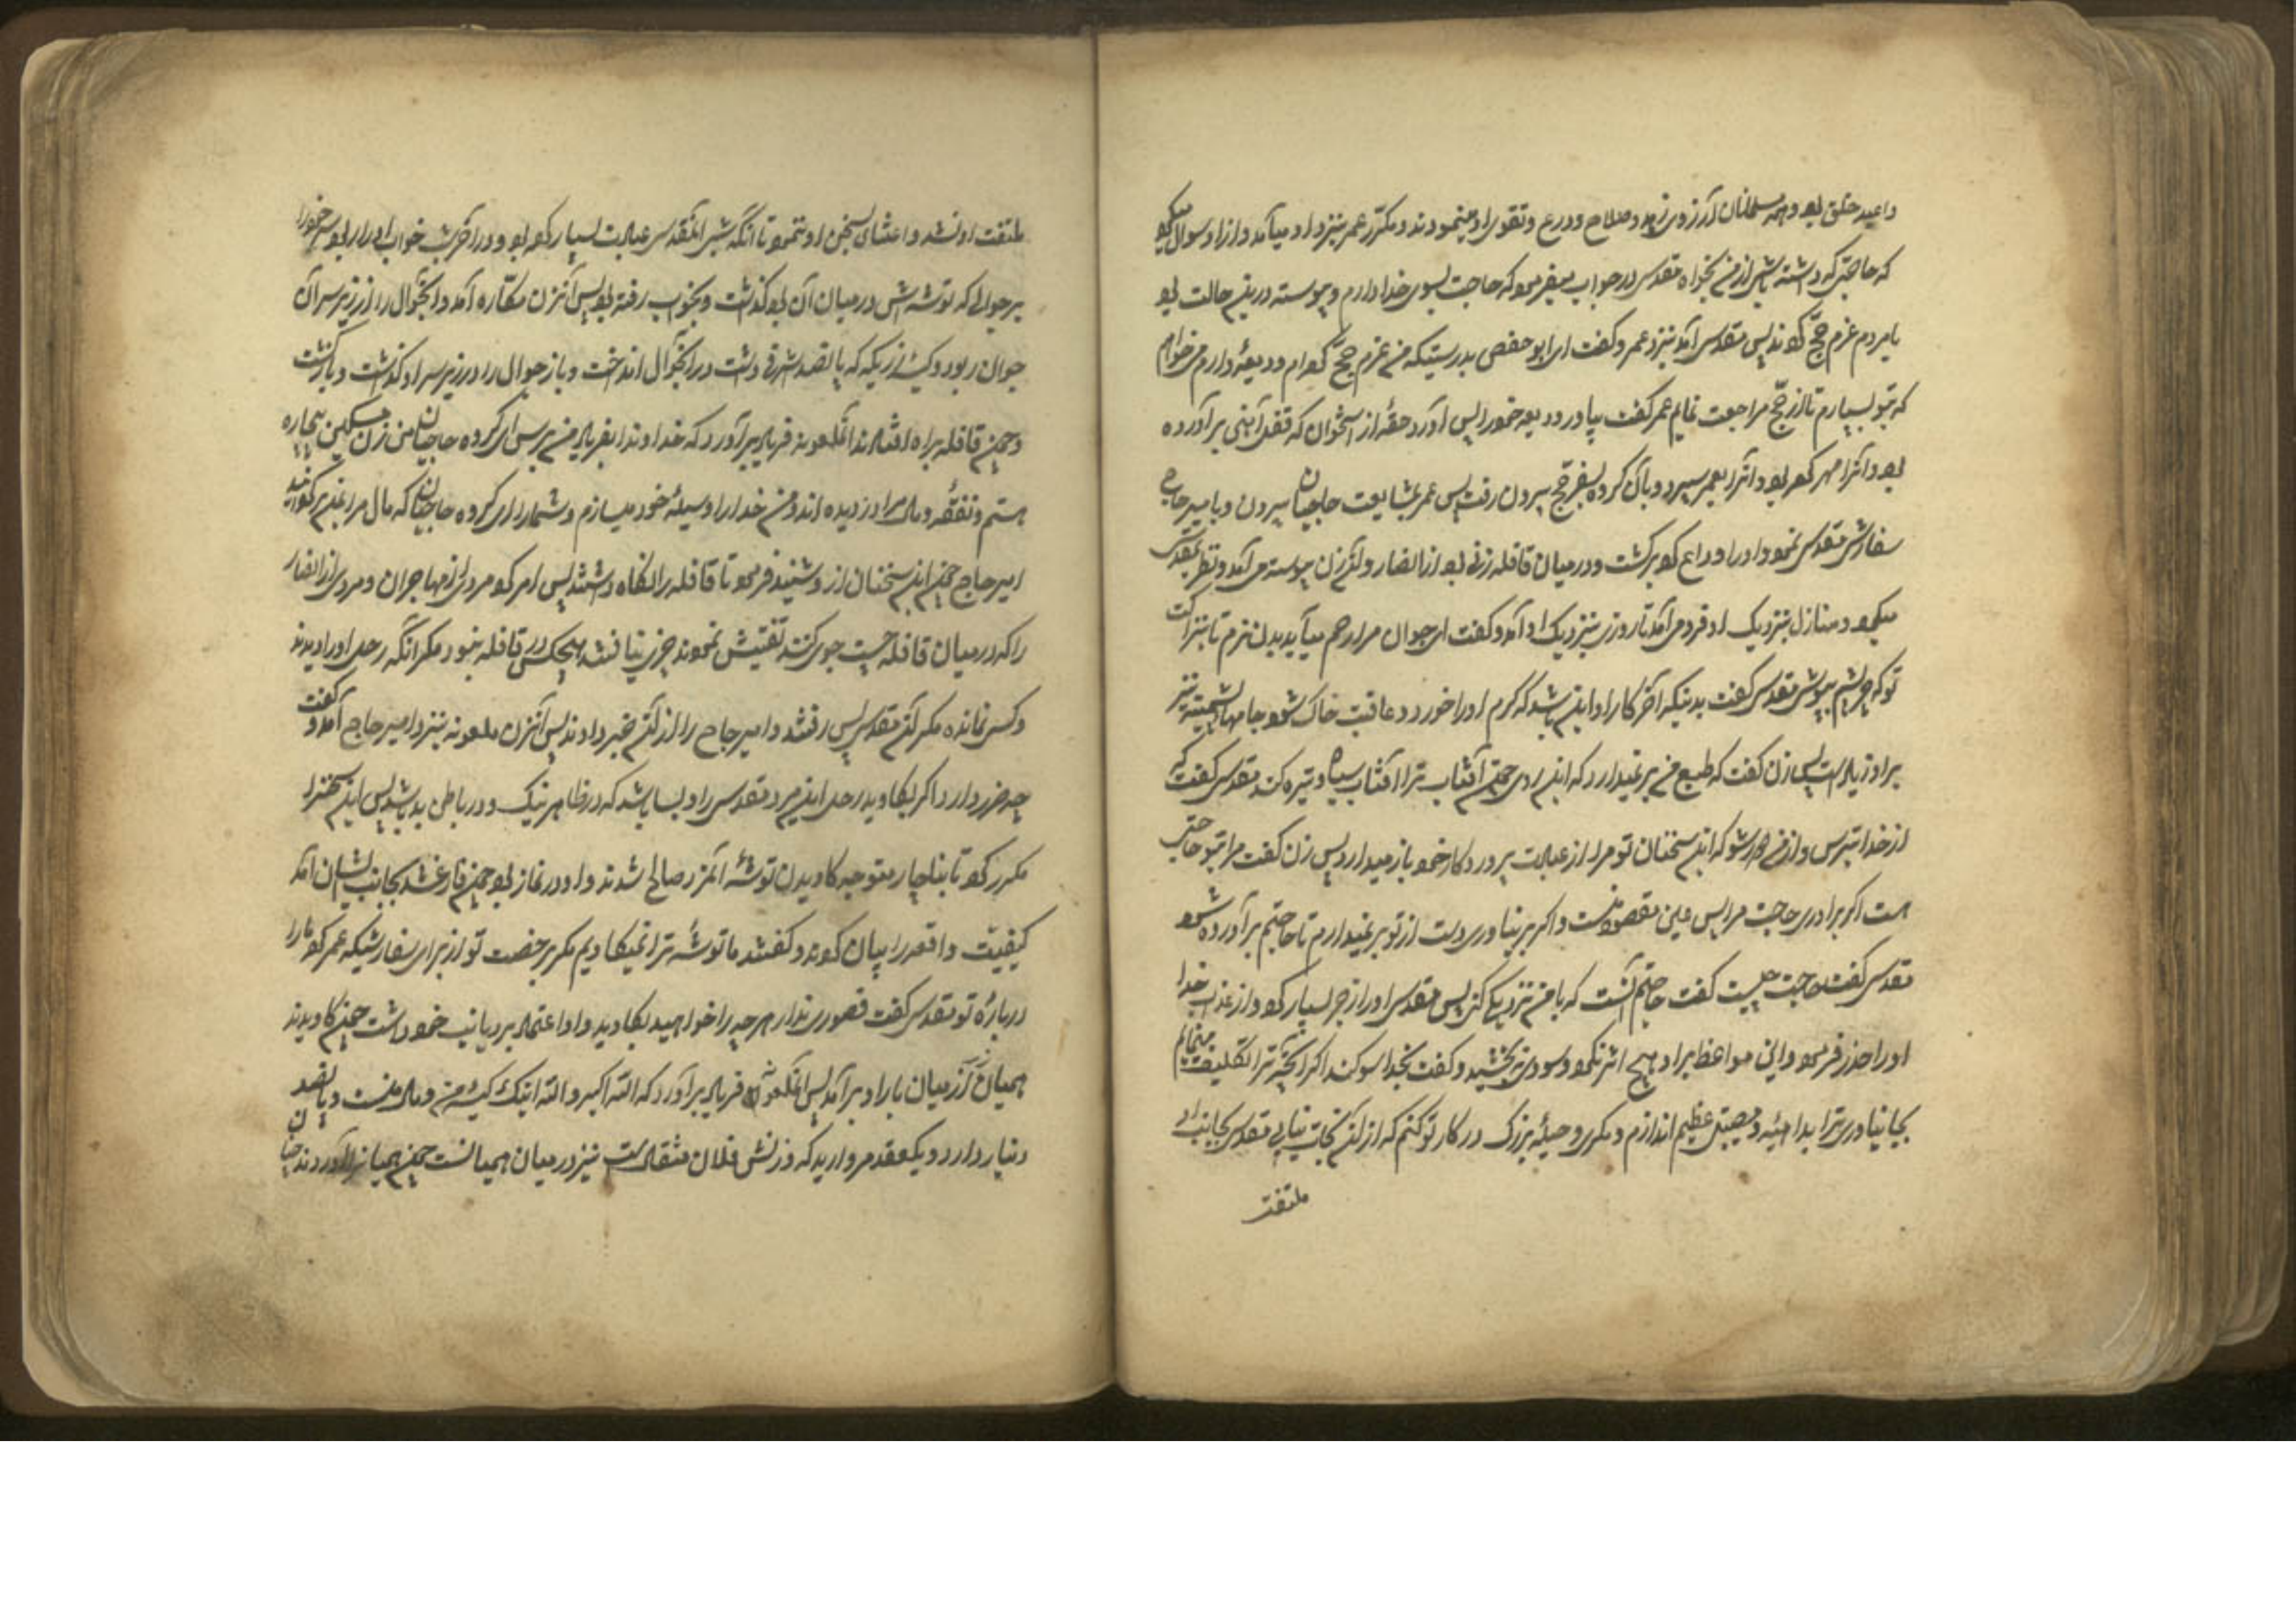 و همه مسلمانان آرزوی زهد و صلاح و ورع و تقوی او مینمودند و مکرّر عمر بنزد او میآمد و از او سوال میکرد
که حاجتی که داشته باشی از من بخواه مقدس در جواب میفرمود که حاجت بسوی خدا دارم و پیوسته درین حالت بود
بامردم عزم حجّ کردند پس مقدس آمد بنزد عمر و گفت ای ابو حفص بدرستیکه من عزم حجّ کردهام و ودیعهٔ دارم میخواهم
که بتو بسپارم تا از حجّ مراجعت نمایم عمر گفت بیاور ودیعه خود را پس آورد حقهٔ از استخوان که قفل آهنی بر آورده
بود و آنرا مهر کرده بود و آنرا بعمر سپرد و با آن گروه بسفر حجّ بیرون رفت پس عمر بمشایعت حاجیان بیرون و با میر حاج
سفارش مقدس نمود و او را وداع کرد برگشت و در میان قافله زنی بود از انصار و آن زن پیوسته می آمد و نظر بمقدس
میکرد و منازل بنزدیک او فرود می آمد تا روزی بنزدیک او آمد و گفت ای جوان مرا رحم میآید بدن نرم نازکت
توکه پشم بپوشی مقدس گفت بدنیکه آخر کار او این باشد که کرم او را خورد و عاقبت خاک شود جامهای پشمینه نیز
بر او زیاد است پس زن گفت که طبع من بر نمیدارد که این روی چون آفتاب ترا آفتاب سیاه و تیره کند مقدس گفت که
از خدا بترس و از من دور شو که این سخنان تو مرا از عبادت پروردگار خود باز میدارد پس زن گفت مرا بتو حاجتی
است اگر برآوردی حاجت مرا پس عین مقصود منست و اگر بر نیاوردی دست از تو بر نمیدارم تا حاجتم برآورده شود
مقدس گفت حاجت چیست گفت حاجتم آنست که با من نزدیکی کنی پس مقدس او را زجر بسیار کرد و از عذاب خدا
او را حذر فرمود و این مواعظ بر او هیچ اثر نکرد و سودی نبخشید و گفت بخدا سوگند اگر آنچه ترا تکلیف مینمایم
بجا نیاوری ترا بداهیه و مصیبتی عظیم اندازم و مکری و حیلهٔ بزرگ در کار تو کنم که از آن نجات نیابی مقدس بجانب او
ملتفت
ملتفت او نشد و اعتنای بسخن او ننمود تا آنکه شبی آنمقدس عبادت بسیار کرده بود و در آخر شب خواب او را ربود سر خود را
بر جوالی که توشه‌اش در میان آن بود گذاشت و بخواب رفته بود پس آنزن مکّاره آمد و آنجوال را از زیر سر آن
جوان ربود و کیسهٔ زریکه که پانصد اشرفی داشت در آنجوال انداخت و باز جوال را در زیر سر او گذاشت و بازگشت
و چون قافله براه افتادند آنملعونه فریاد برآورد که خداوندا بفریاد من برس ای گروه حاجیان من زن مسکین بیچاره
هستم و نفقه و مال مرا دزدیده‌اند و من خدا را وسیلهٔ خود میسازم و شما را ای گروه حاجیان که مال مرا بمن برگردانید
امیر حاج چون این سخنان از او شنید فرمود تا قافله را نگاه داشتند پس امر کرد مردی از مهاجران و مردی را از انصار
را که در میان قافله جست جوی کنند تفتیش نمودند چیزی نیافتند هیچکس در قافله نبود مگر آنکه رحل او را دیدند
و کسی نمانده مگر آن مقدس پس رفتند و امیر حاج را از آن خبر دادند پس آنزن ملعونه بنزد امیر حاج آمد و گفت
چه ضرر دارد اگر بکاوید رحل این مرد مقدس را و بسا باشد که در ظاهر نیک و در باطن بد باشد پس این سخنرا
مکرر کرد تا بناچار متوجه کاویدن توشهٔ آنمرد صالح شدند و او در نماز بود چون فارغ شد بجانب ایشان آمد
کیفیت واقعه را بیان کردند و گفتند ما توشهٔ ترا نمیکاویم مگر برخصت تو از برای سفارشیکه عمر کرد ما را
دربارهٔ تو مقدس گفت قصوری ندارد هر چه را خواهید بکاوید و او اعتماد بر دیانت خود داشت چون کاویدند
همیان زر از میان بار او برآمد پس آنملعونه فریاد برآورد که الله اکبر والله اینک کیسهٔ من و مال منست و پانصد
دینار دارد و یکعقد مروارید که وزنش فلان مثقال است نیز در میان همیانست چون همیانرا آوردند